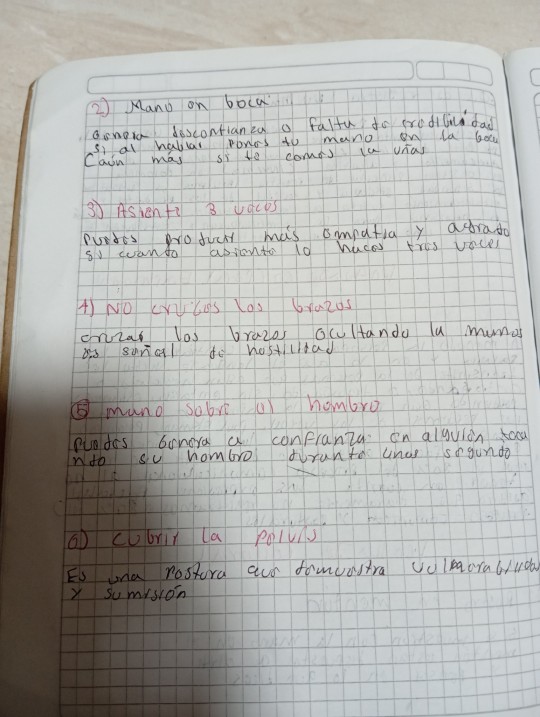 2) Mano en boca
Genera desconfianza o falta de credibilidad
si al hablar pones tu mano en la boca
Caun más si te comes la uñas
3) Asiente 3 veces
Puedes producir más empatia y agrado
si cuando asiente lo haces tres veces
4) No cruces los brazos
cruzar los brazos ocultando la manos
es señal de hostilidad
5 mano sobre el hombro
Puedes Genera a confianza en alguién toca
ndo su hombro durante unas segundo
6) Cubrir la pelvis
Es una Postura que demuestra vulnerabilida
y sumisión